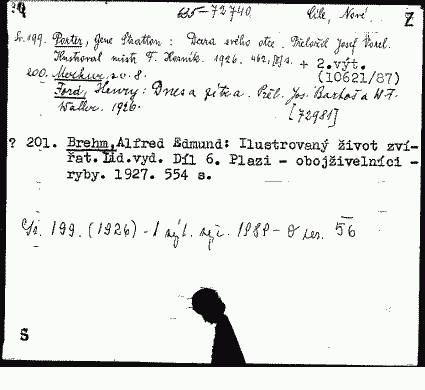 Q 635-72740 Cíle, Nové. Z
Sv. 199. Porter, Gene Stratton: Dcera svého otce. Přeložil Josef Vorel.
Ilustroval mistr F. Horník. 1926. 462, [II] s. + 2.výt.
200. Merkur, sv. 8. (10621/87)
Ford, Henry: Dnes a zítra. Přel. Jos. Bartoš a H. F.
Waller. 1926. [72981]
? 201. Brehm, Alfred Edmund: Ilustrovaný život zví-
řat. Lid.vyd. Díl 6. Plazi - obojživelníci -
ryby. 1927. 554 s.
Sv. 199. (1926) - 1 výt. vyř. 1989 - 56
S